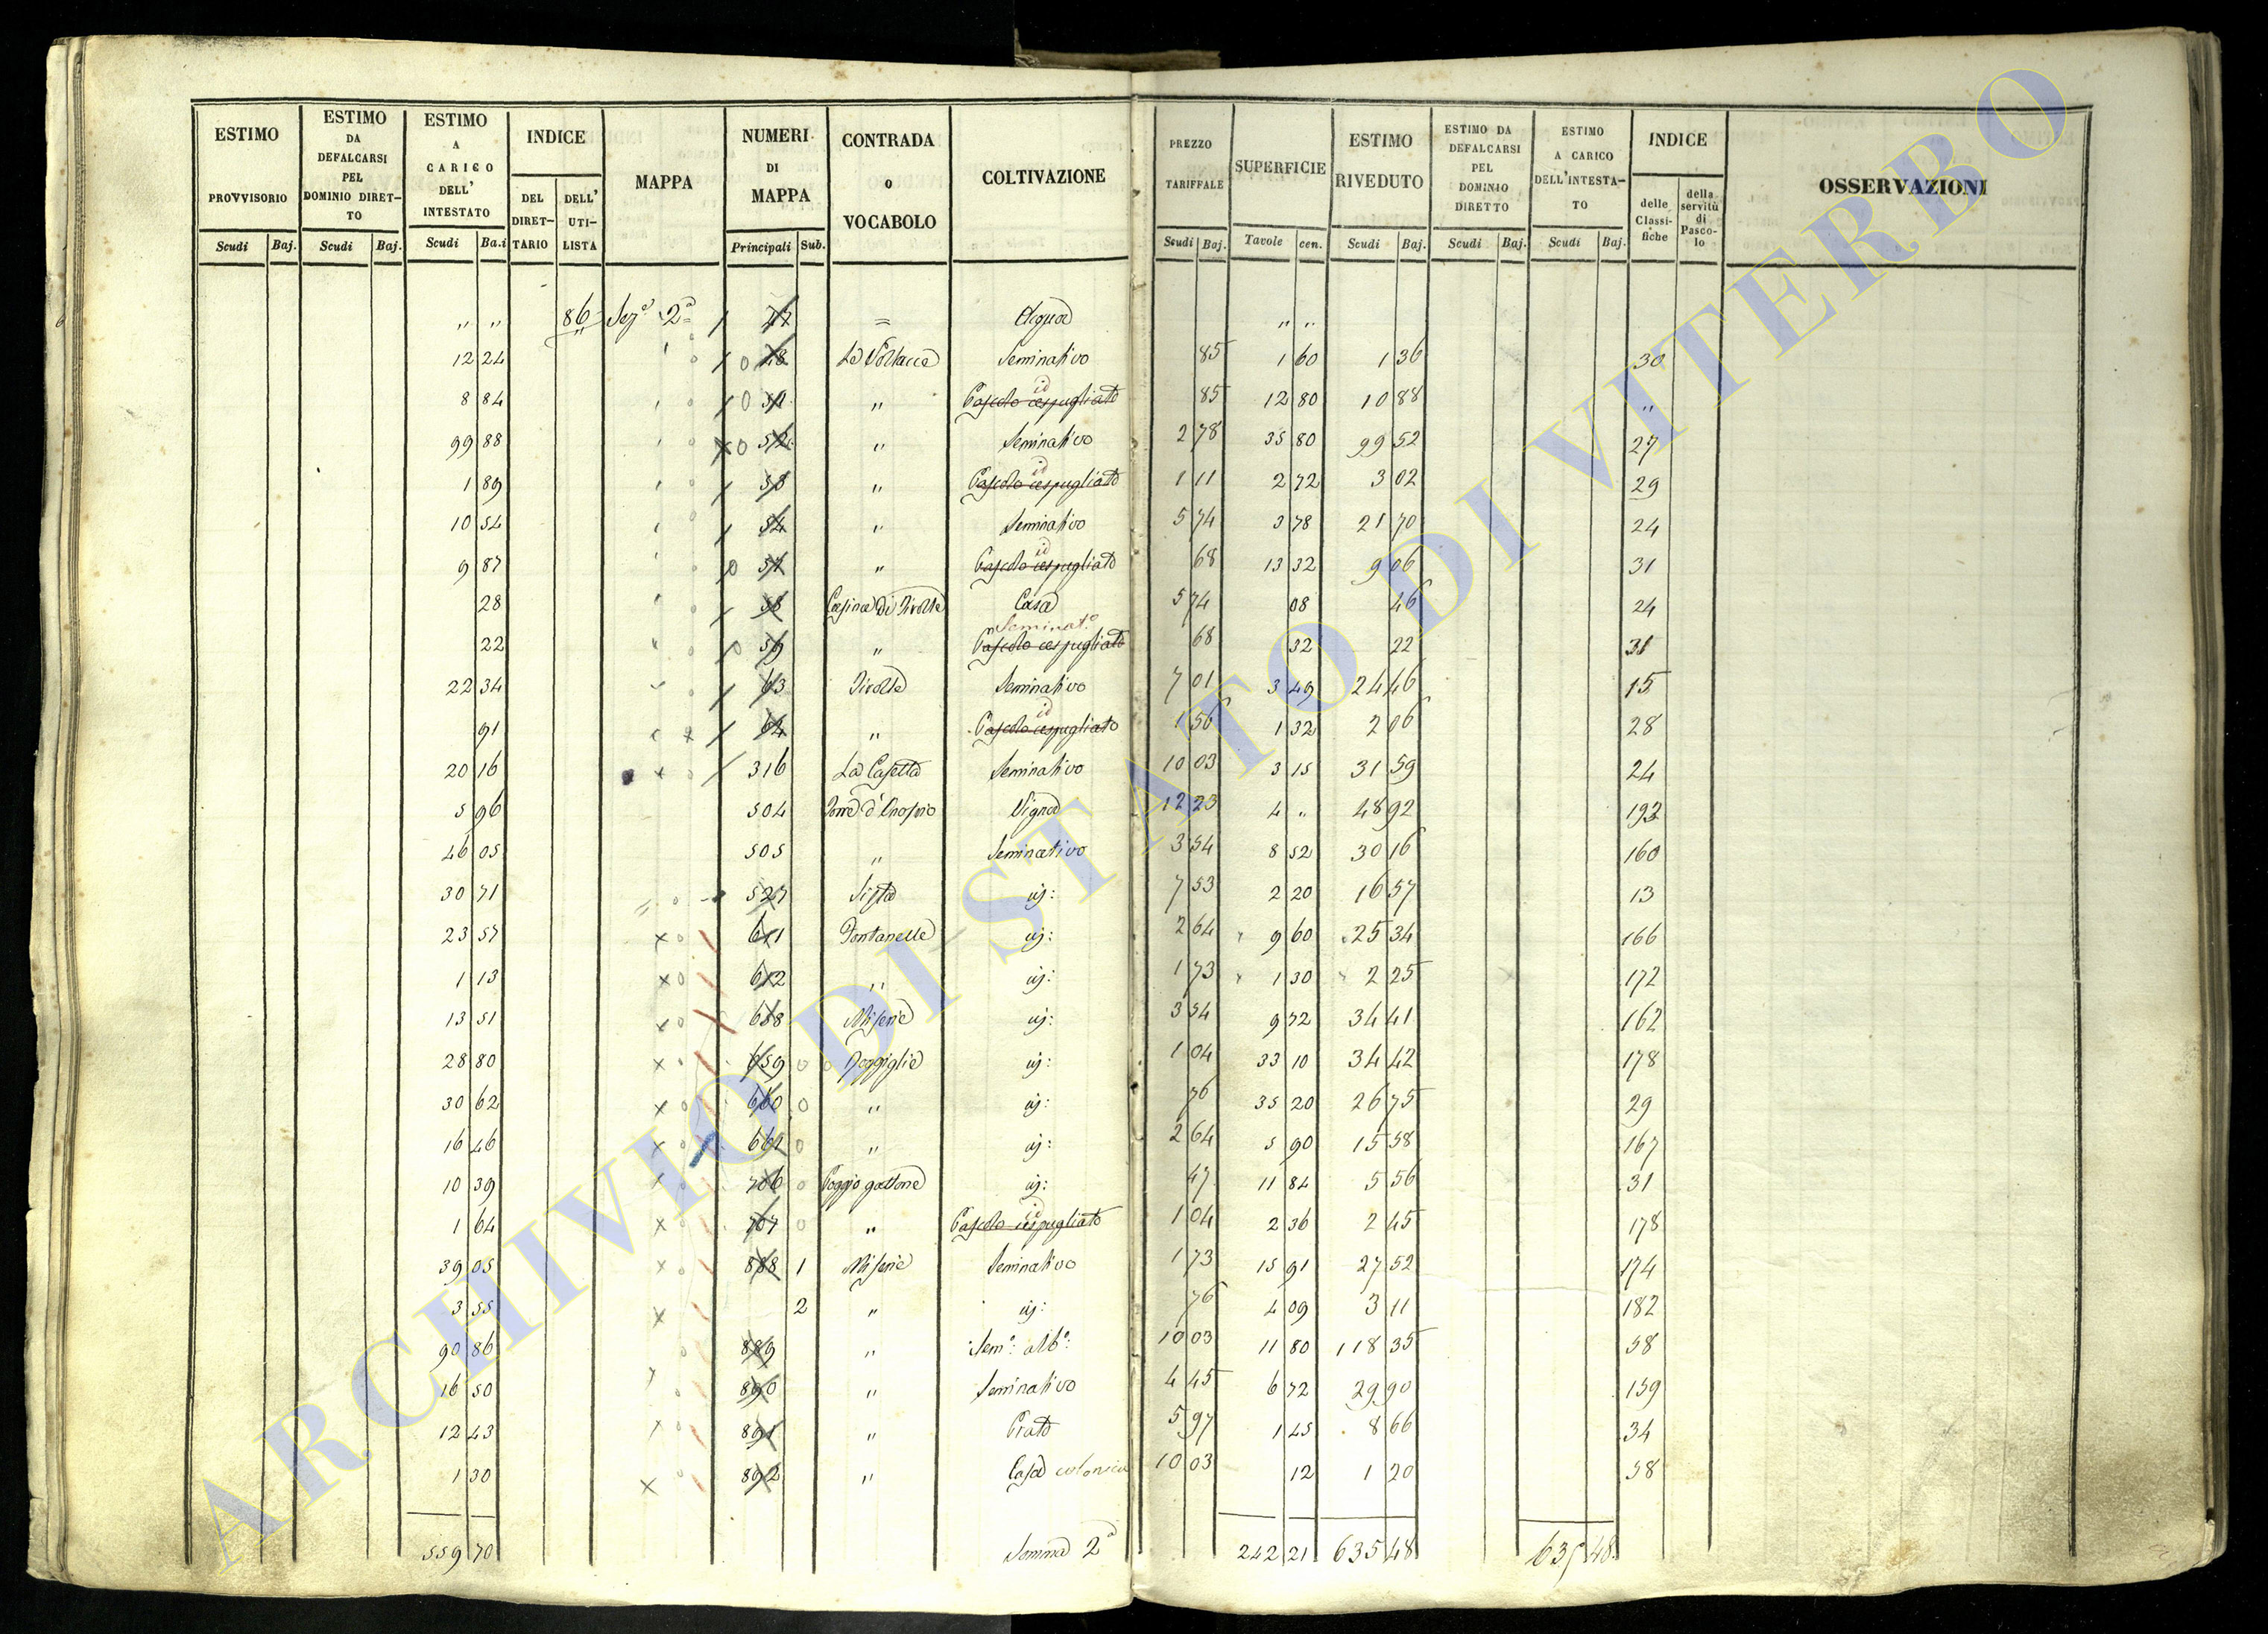 ESTIMO PROVVISORIO Scudi Baj.
ESTIMO DA DEFALCARSI PEL DOMINIO DIRETTO Scudi Baj.
ESTIMO A CARICO DELL' INTESTATO Scudi Ba.i
INDICE DEL DIRETTARIO DELL' UTILISTA
MAPPA
NUMERI DI MAPPA Principali Sub.
CONTRADA o VOCABOLO
COLTIVAZIONE
PREZZO TARIFFALE Scudi Baj.
SUPERFICIE Tavole cen.
ESTIMO RIVEDUTO Scudi Baj.
ESTIMO DA DEFALCARSI PEL DOMINIO DIRETTO Scudi Baj.
ESTIMO A CARICO DELL'INTESTATO Scudi Baj.
INDICE delle Classifiche della servitù di Pascolo
OSSERVAZIONI
" " 86 Sez.e 2a 47 = Acqua " "
12 24 48 Seminativo 85 1 60 1 36 30
8 84 51 " Pascolo cespugliato id 85 12 80 10 88 "
99 88 52 " Seminativo 2 78 35 80 99 52 27
1 89 53 " Pascolo cespugliato id 1 11 2 72 3 02 29
10 54 54 " Seminativo 5 74 3 78 21 70 24
9 87 57 " Pascolo cespugliato id 68 13 32 9 06 31
28 58 Casina di Casa 5 74 08 46 24
22 59 " Pascolo cespugliato Seminat.o 68 32 22 31
22 34 63 Seminativo 7 01 3 49 24 46 15
91 64 " Pascolo cespugliato id 1 56 1 32 2 06 28
20 16 316 La Casetta Seminativo 10 03 3 15 31 59 24
5 96 504 Vigna 12 23 4 " 48 92 192
46 05 505 " Seminativo 3 54 8 52 30 16 160
30 71 527 Sista 7 53 2 20 16 57 13
23 57 611 Fontanelle 2 64 9 60 25 34 166
1 13 612 " 1 73 1 30 2 25 172
13 51 688 Miserie 3 54 9 72 34 41 162
28 80 659 1 04 33 10 34 42 178
30 62 660 " 76 35 20 26 75 29
16 46 662 " 2 64 5 90 15 58 167
10 39 706 Poggio gattone 47 11 84 5 56 31
1 64 707 " Pascolo cespugliato id 1 04 2 36 2 45 178
39 05 888 1 Miserie Seminativo 1 73 15 91 27 52 174
3 55 2 " 76 4 09 3 11 182
90 86 889 " Sem.o alb.o: 10 03 11 80 118 35 58
16 50 890 " Seminativo 4 45 6 72 29 90 159
12 43 891 " Prato 5 97 1 45 8 66 34
1 30 892 " Casa colonica 10 03 12 1 20 58
559 70 Somma 2a 242 21 635 48 635 48
ARCHIVIO DI STATO DI VITERBO